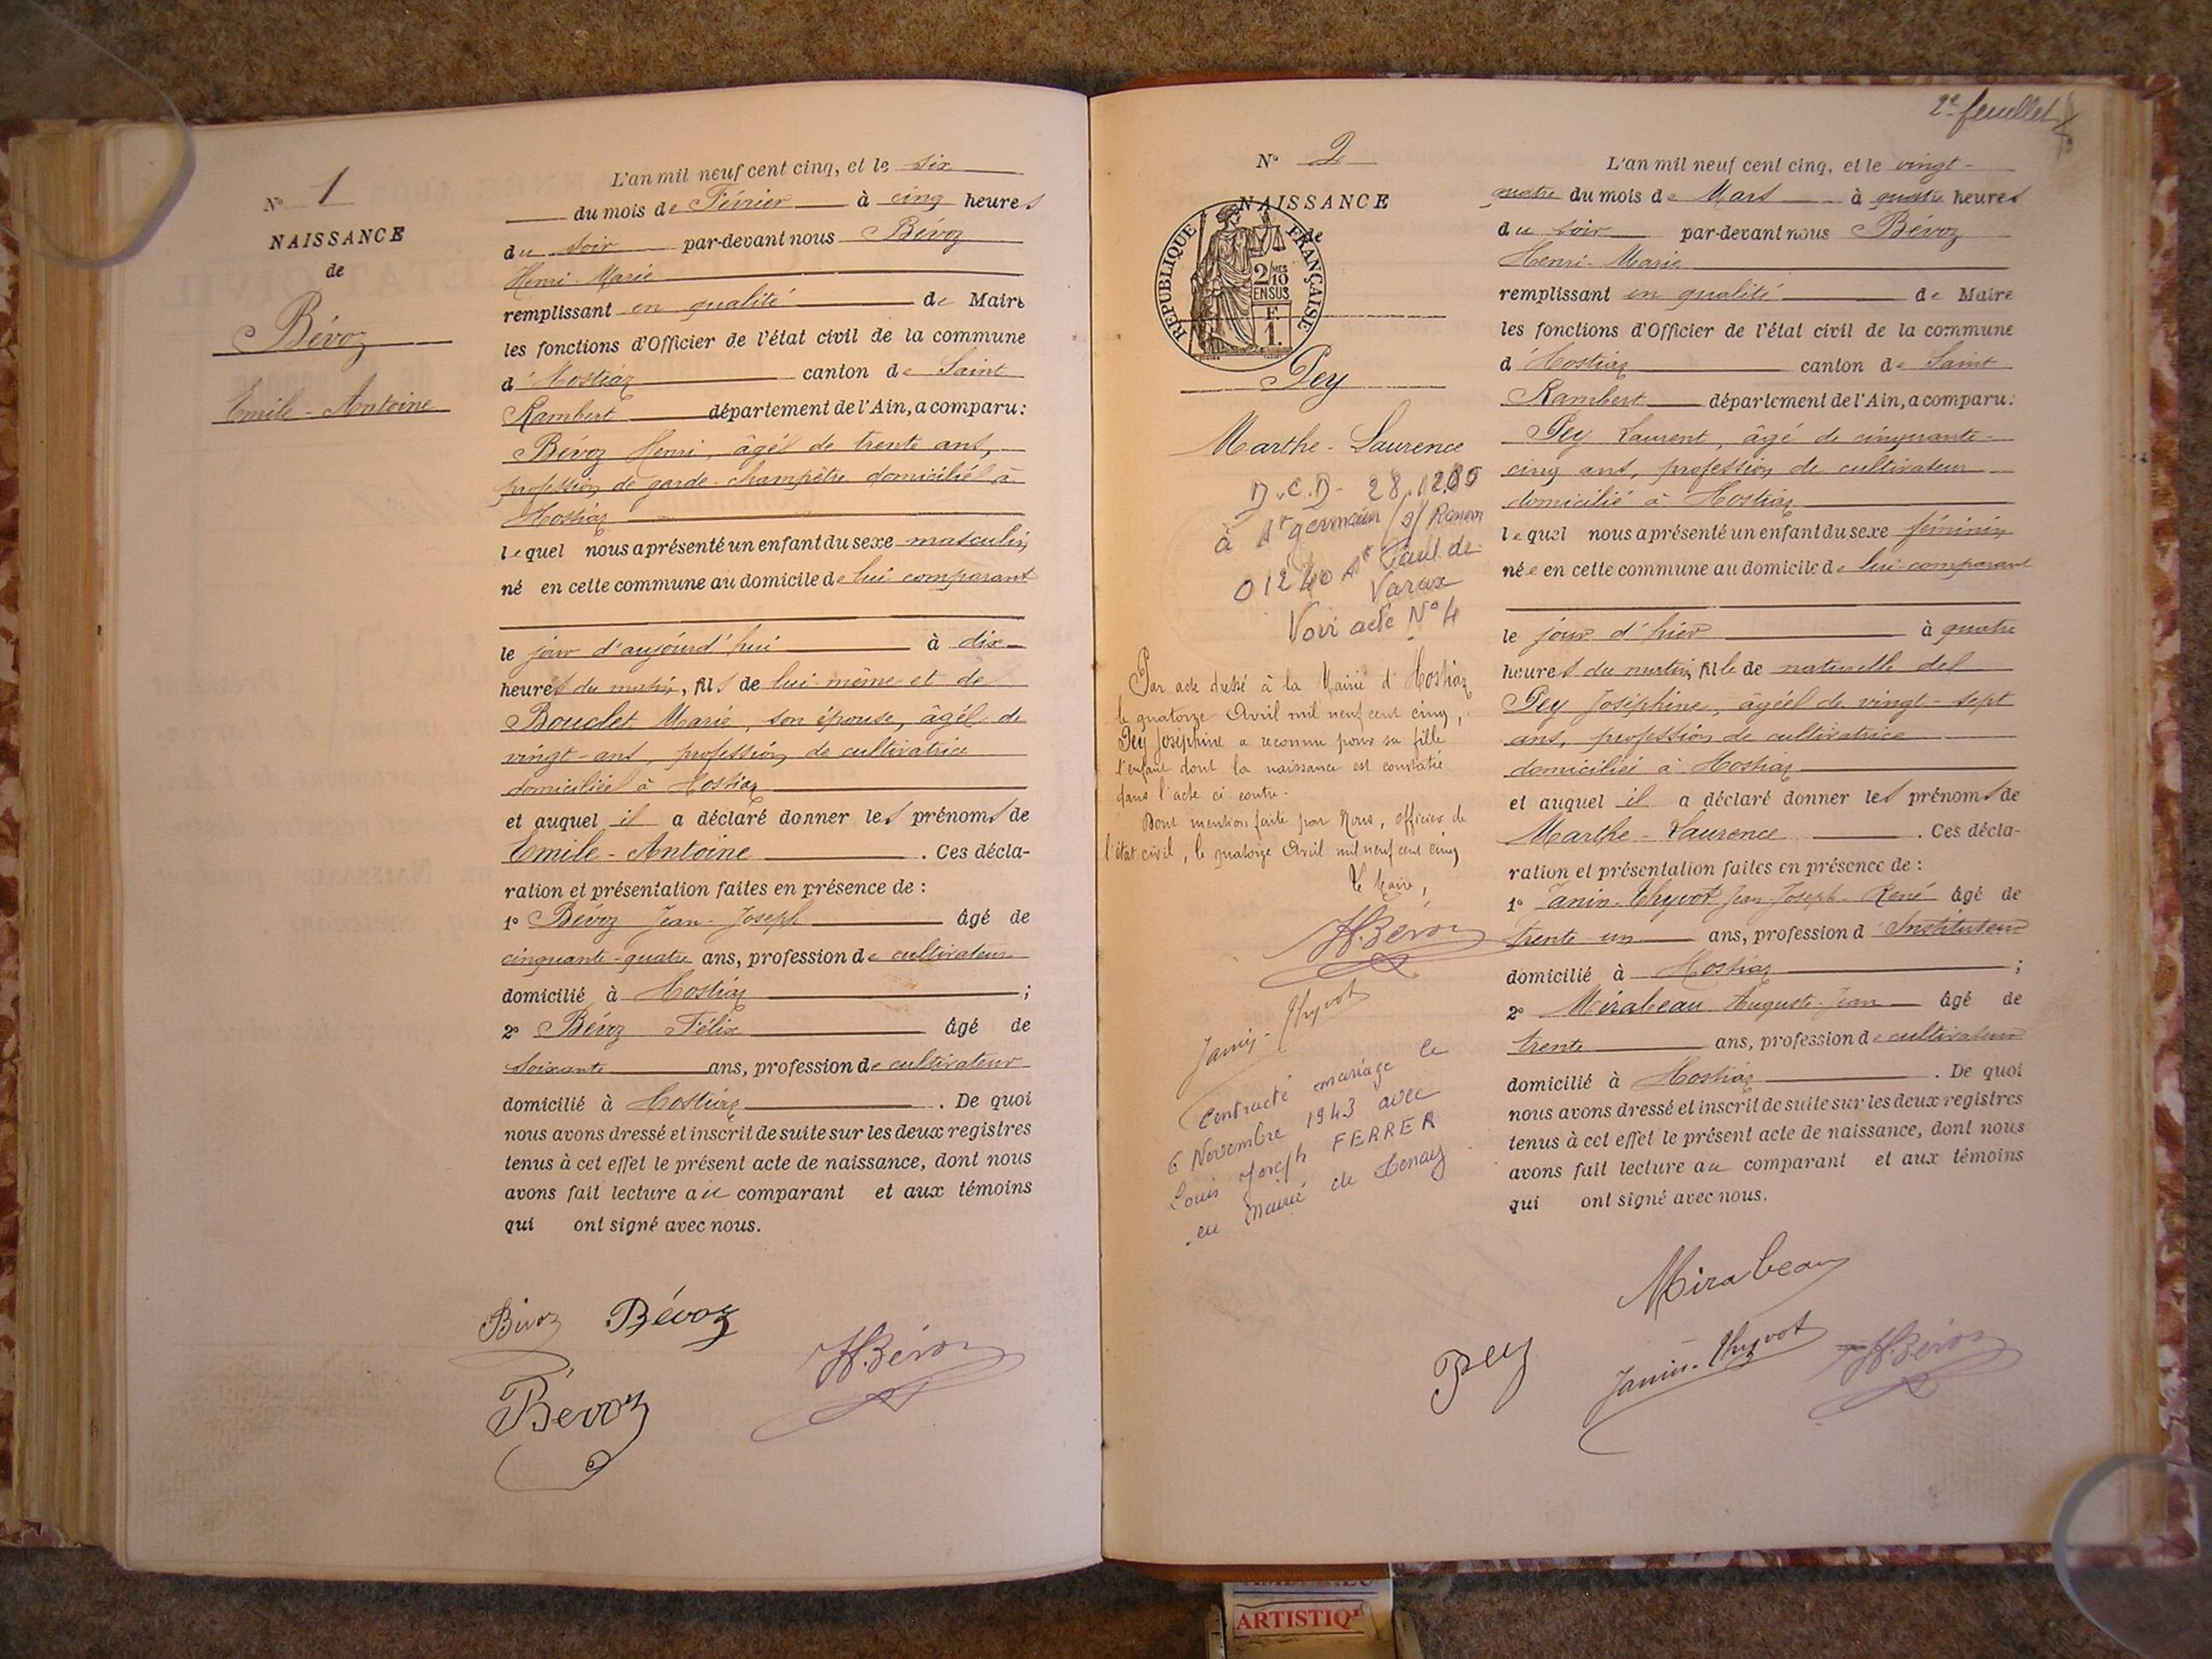 N° 1
NAISSANCE
de
Bévoz
Emile-Antoine
L'an mil neuf cent cinq, et le six
du mois de Février à cinq heures
du soir par-devant nous Bévoz
Henri-Marie
remplissant en qualité de Maire
les fonctions d'Officier de l'état civil de la commune
d'Hostiaz canton de Saint
Rambert département de l'Ain, a comparu:
Bévoz Henri, âgé de trente ans,
profession de garde-champêtre domicilié à
Hostiaz
lequel nous a présenté un enfant du sexe masculin
né en cette commune au domicile de lui comparant
le jour d'aujourd'hui à dix
heures du matin, fils de lui-même et de
Bouclet Marie, son épouse, âgée de
vingt-ans, profession de cultivatrice
domiciliée à Hostiaz
et auquel il a déclaré donner les prénoms de
Emile-Antoine. Ces décla-
ration et présentation faites en présence de :
1° Bévoz Jean-Joseph âgé de
cinquante-quatre ans, profession de cultivateur
domicilié à Hostiaz ;
2° Bévoz Félix âgé de
soixante ans, profession de cultivateur
domicilié à Hostiaz. De quoi
nous avons dressé et inscrit de suite sur les deux registres
tenus à cet effet le présent acte de naissance, dont nous
avons fait lecture au comparant et aux témoins
qui ont signé avec nous.
Bévoz Bévoz
H. Bévoz
Bévoz
2e feuillet
N° 2
NAISSANCE
de
REPUBLIQUE FRANÇAISE
2/10 MES
EN SUS
F.
1.
Pey
Marthe-Laurence
D.C.D-
à St germain/s/Renom
01240 St Paul de
Varax
Voir acte N° 4
Par acte dressé à la Mairie d'Hostiaz
le quatorze Avril mil neuf cent cinq,
Pey Joséphine a reconnu pour sa fille
l'enfant dont la naissance est constatée
dans l'acte ci-contre.
Dont mention faite par Nous, officier de
l'état civil, le quatorze Avril mil neuf cent cinq
Le Maire,
H. Bévoz
Janin-Thyvot
Contracté mariage le
6 Novembre 1943 avec
Louis Joseph FERRER
en Mairie de Tenay
L'an mil neuf cent cinq, et le vingt-
quatre du mois de Mars à quatre heures
du soir par-devant nous Bévoz
Henri-Marie
remplissant en qualité de Maire
les fonctions d'Officier de l'état civil de la commune
d'Hostiaz canton de Saint
Rambert département de l'Ain, a comparu:
Pey Laurent, âgé de cinquante-
cinq ans, profession de cultivateur
domicilié à Hostiaz
lequel nous a présenté un enfant du sexe féminin
née en cette commune au domicile de lui comparant
le jour d'hier à quatre
heures du matin fille de naturelle de
Pey Joséphine, âgée de vingt-sept
ans, profession de cultivatrice
domiciliée à Hostiaz
et auquel il a déclaré donner les prénoms de
Marthe-Laurence. Ces décla-
ration et présentation faites en présence de :
1° Janin-Thyvot Jean Joseph-René âgé de
trente-un ans, profession d'Instituteur
domicilié à Hostiaz ;
2° Mirabeau Auguste-Jean âgé de
trente ans, profession de cultivateur
domicilié à Hostiaz. De quoi
nous avons dressé et inscrit de suite sur les deux registres
tenus à cet effet le présent acte de naissance, dont nous
avons fait lecture au comparant et aux témoins
qui ont signé avec nous.
Mirabeau
Pey Janin-Thyvot H. Bévoz
ARTISTIQ